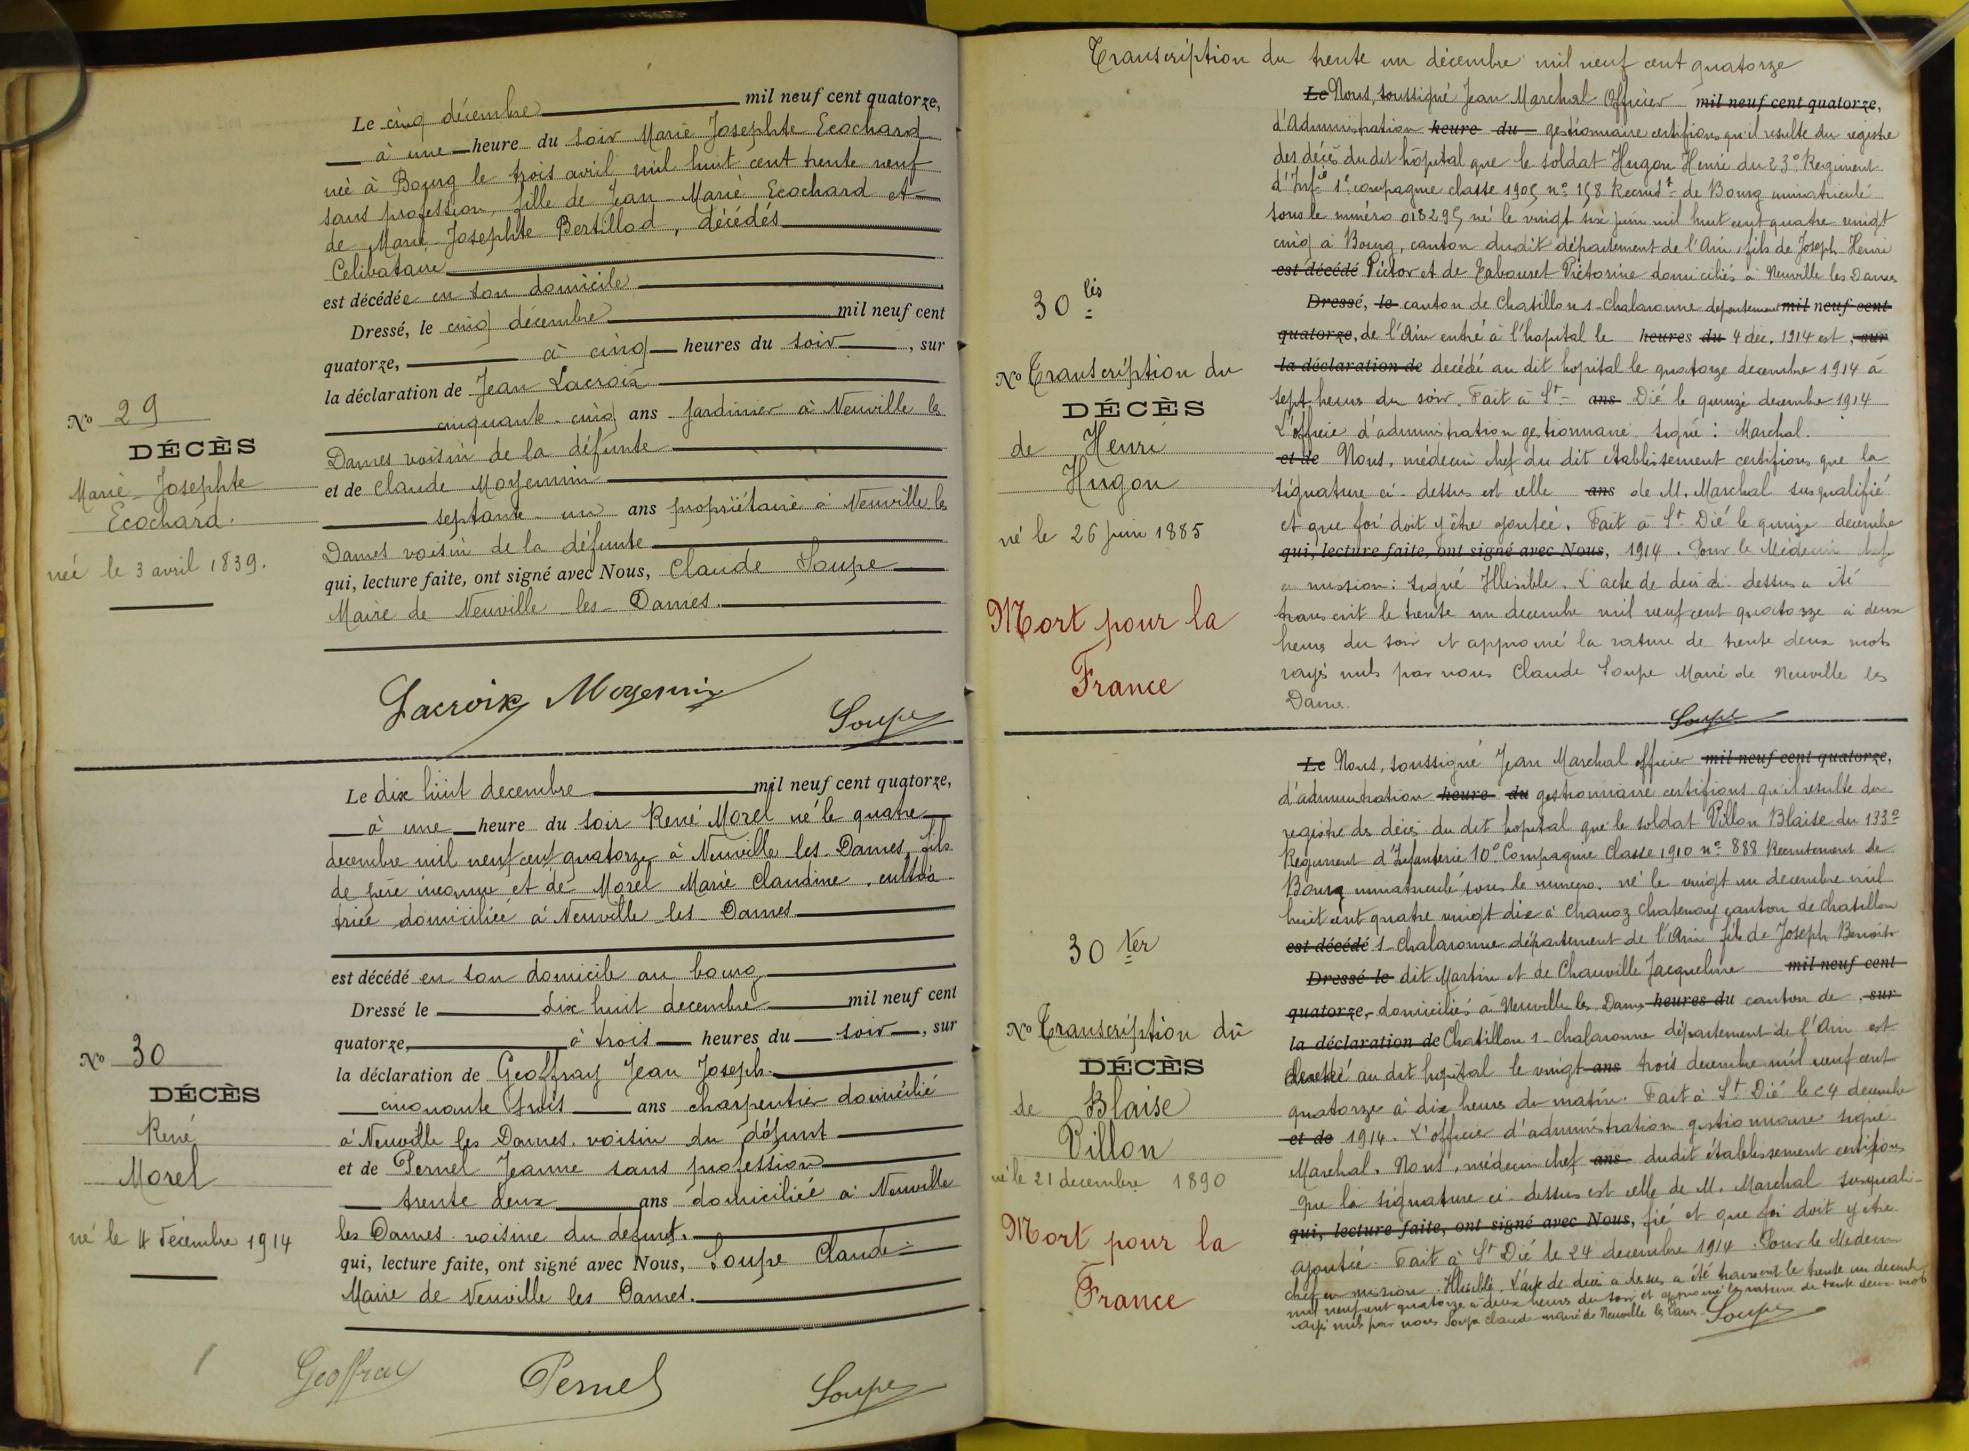 Le cinq décembre mil neuf cent quatorze,
à une heure du soir Marie Josephte Ecochard
née à Bourg le trois avril mil huit cent trente neuf
sans profession, fille de Jean-Marie Ecochard et
de Marie Josephte Bertillod, décédés
Celibataire
est décédée en son domicile
Dressé, le cinq décembre mil neuf cent
quatorze, à cinq heures du soir, sur
la déclaration de Jean Lacroix
cinquante-cinq ans Jardinier à Neuville le
Dames voisin de la défunte
et de Claude Moyennin
septante-un ans propriétaire à Neuville les
Dames voisin de la défunte
qui, lecture faite, ont signé avec Nous, Claude Soupe
Maire de Neuville-les-Dames.
No 29
DÉCÈS
Marie-Josephte
Ecochard.
née le 3 avril 1839.
Lacroix Moyennin
Soupe
Le dix huit decembre mil neuf cent quatorze,
à une heure du soir René Morel né le quatre
decembre mil neuf cent quatorze à Neuville les-Dames, fils
de père inconnu et de Morel Marie Claudine, cultiva
trice domiciliée à Neuville les Dames
est décédé en son domicile au bourg
Dressé le dix huit decembre mil neuf cent
quatorze, à trois heures du soir, sur
la déclaration de Geoffray Jean Joseph
cinquante trois ans charpentier domicilié
à Neuville les Dames. voisin du défunt
et de Pernel Jeanne sans profession
trente deux ans domiciliée à Neuville
les Dames voisine du defunt.
qui, lecture faite, ont signé avec Nous, Soupe Claude
Maire de Neuville les Dames.
No 30
DÉCÈS
René
Morel
né le 4 décembre 1914
Geoffray Pernel Soupe
Transcription du trente un décembre mil neuf cent quatorze
Le Nous, soussigné Jean Marchal Officier mil neuf cent quatorze,
d'Administration heure du gestionnaire certifions qu'il resulte du registre
des décès du dit hôpital que le soldat Hugon Henri du 23e Regiment
d'Infie 1e compagnie classe 1905 no 158 Recrutt de Bourg immatriculé
sous le numéro 018295 né le vingt six juin mil huit cent quatre vingt
cinq à Bourg, canton dudit département de l'Ain, fils de Joseph Henri
est décédé Victor et de Victorine domiciliés à Neuville les Dames
Dressé, le canton de Chatillon s-Chalaronne departement mil neuf cent
quatorze, de l'Ain entré à l'hopital le heures du 4 déc. 1914 est, sur
la déclaration de decédé au dit hopital le quatorze decembre 1914 à
sept heures du soir. Fait à St ans Dié le quinze decembre 1914
L'officier d'administration gestionnaire signé: Marchal.
et de Nous, médecin chef du dit établissement certifions que la
signature ci-dessus est celle ans de M. Marchal susqualifié
et que foi doit y être ajoutée. Fait à St Dié le quinze decembre
qui, lecture faite, ont signé avec Nous, 1914. Pour le Médecin chef
en mission: signé Illisible. L'acte de décès ci-dessus a été
transcrit le trente un decembre mil neuf cent quatorze à deux
heures du soir et approuvé la rature de trente deux mots
rayés nuls par nous Claude Soupe Maire de Neuville les
Dames.
Soupe
30 bis
No Transcription du
DÉCÈS
de Henri
Hugon
né le 26 juin 1885
Mort pour la
France
Le Nous, soussigné Jean Marchal officier mil neuf cent quatorze,
d'administration heure du gestionnaire certifions qu'il resulte du
registre des décès du dit hopital que le soldat Villon Blaise du 133e
Regiment d'Infanterie 10e Compagnie Classe 1910 no 888 Recrutement de
Bourg immatriculé sous le numero. né le vingt un decembre mil
huit cent quatre vingt dix à Chanoz Chatenay canton de Chatillon
est décédé s-Chalaronne département de l'Ain fils de Joseph Benoit
Dressé le dit Martin et de Chauville Jacqueline mil neuf cent
quatorze, domiciliés à Neuville les Dames heures du canton de, sur
la déclaration de Chatillon s-Chalaronne département de l'Ain est
décédé au dit hopital le vingt ans trois decembre mil neuf cent
quatorze à dix heures du matin. Fait à St Dié le 24 decembre
et de 1914. L'officier d'administration gestionnaire signé
Marchal. Nous, médecin chef ans dudit établissement certifions
que la signature ci-dessus est celle de M. Marchal susquali-
qui, lecture faite, ont signé avec Nous, fié et que foi doit y être
ajoutée. Fait à St Dié le 24 decembre 1914. Pour le Medecin
chef en mission. Illisible. L'acte de décès ci dessus a été transcrit le trente un decembre
mil neuf cent quatorze à deux heures du soir et approuvé la rature de trente deux mots
rayés nuls par nous Soupe Claude maire de Neuville les Dames. Soupe
30 ter
No Transcription du
DÉCÈS
de Blaise
Villon
né le 21 decembre 1890
Mort pour la
France